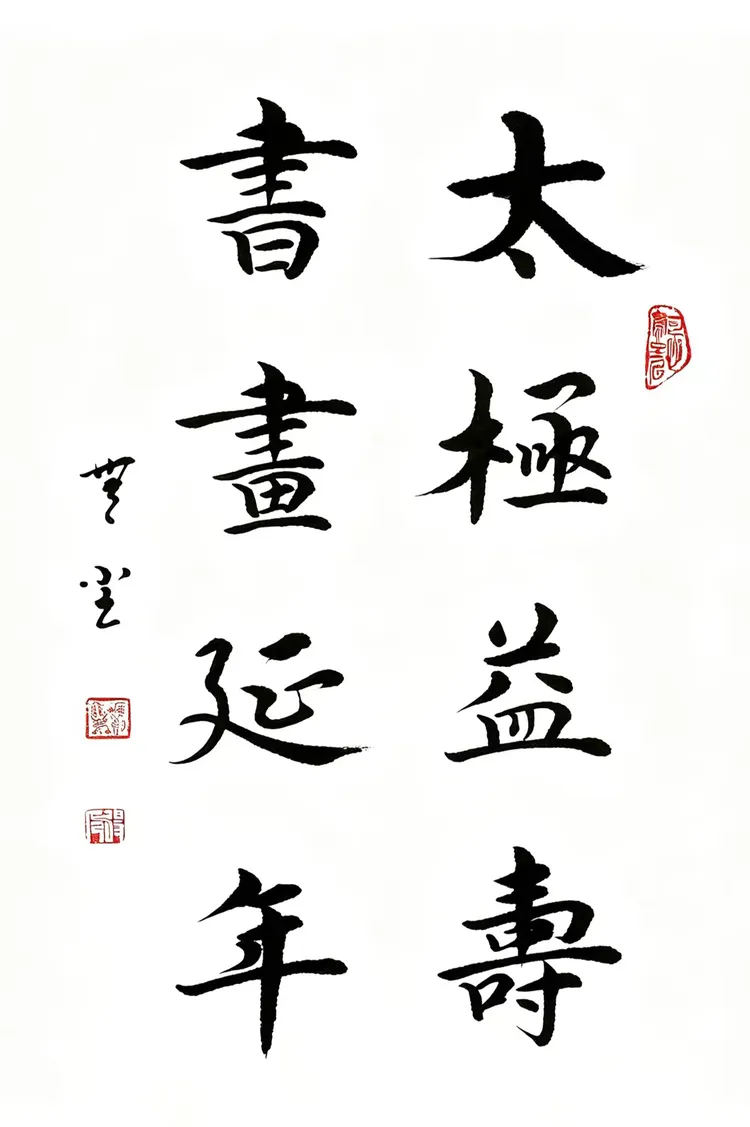 太極益壽
書畫延年
無塵